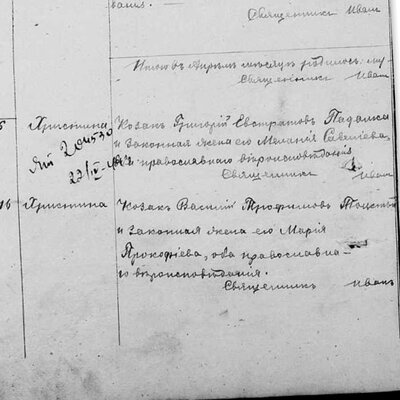 вания.
Священникъ Иванъ
Итого въ Апрѣлѣ мѣсяцѣ родилось: му-
Священникъ Иванъ
5 Христина Козакъ Григорій Евстратовъ Падалка
и законная жена его Меланія Савеліева,
оба православнаго вѣроисповѣданія
Священникъ Иванъ
16 Христина Козакъ Василій Трофимовъ
и законная жена его Марія
Прокофіева, оба православна-
го вѣроисповѣданія.
Священникъ Иванъ